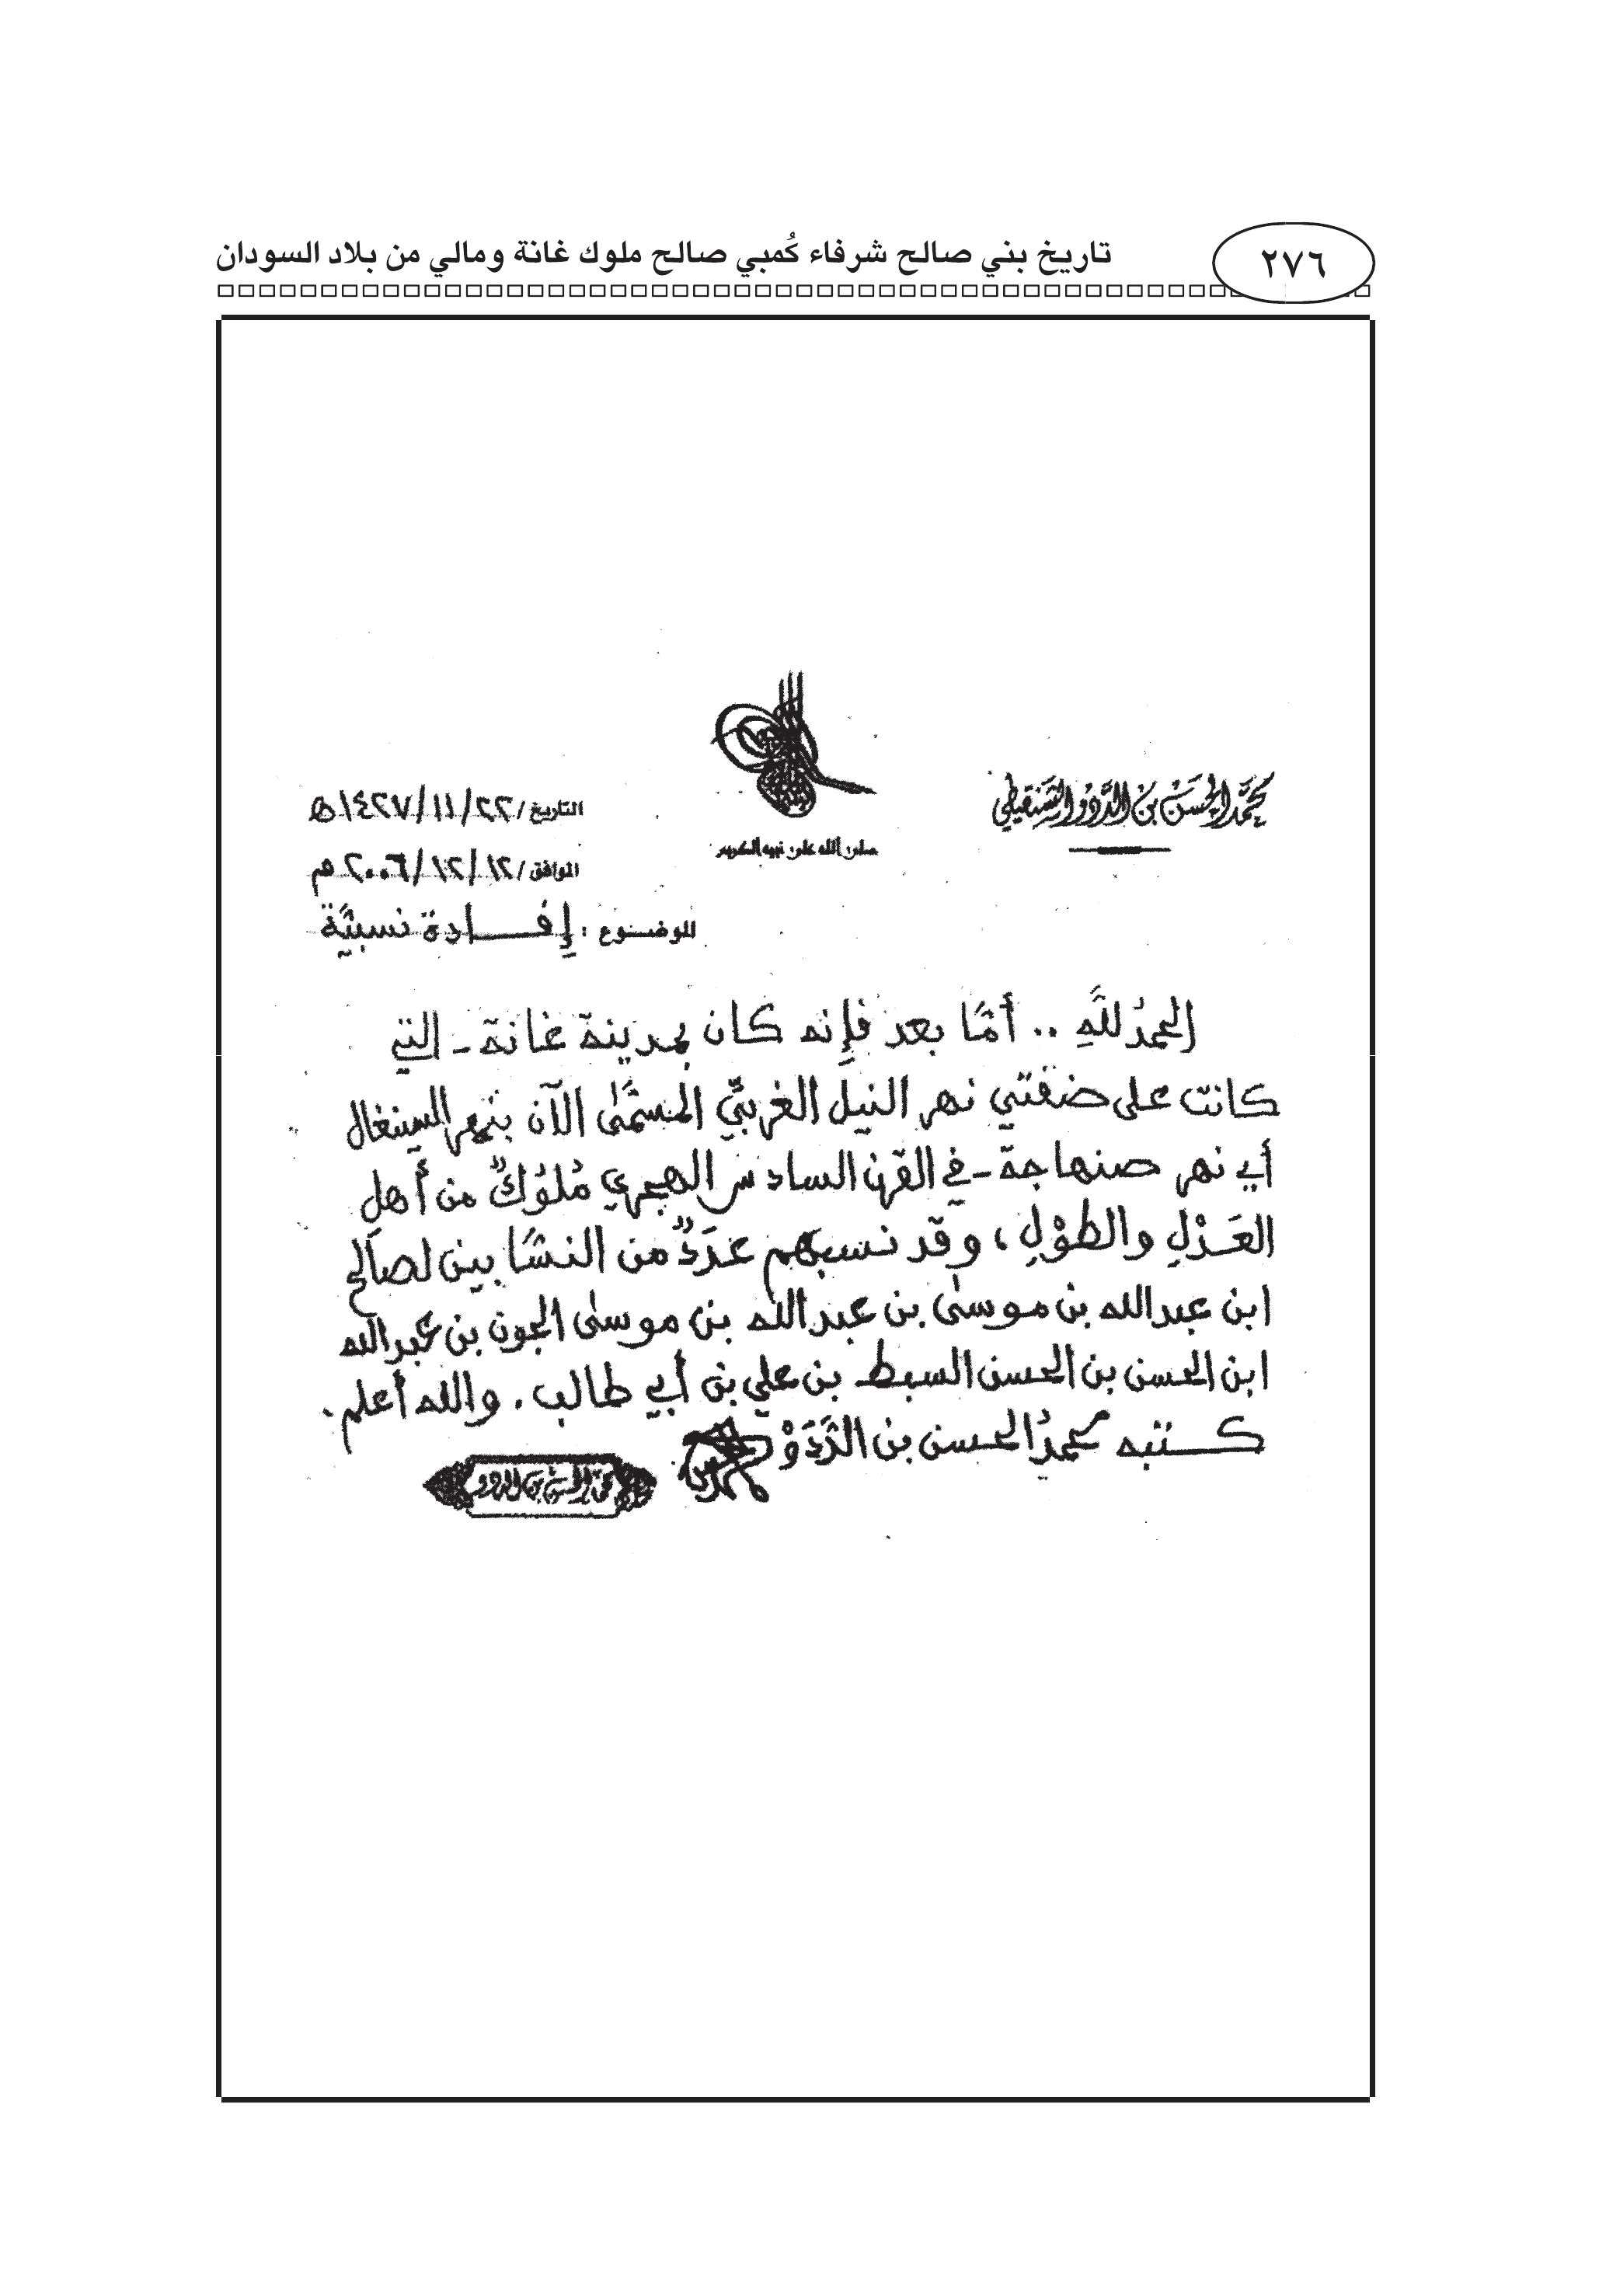 تاريخ بني صالح شرفاء كُمبي صالح ملوك غانة ومالي من بلاد السودان
٢٧٦
محمد الحسن بن الددو الشنقيطي
صلى الله على نبيه الكريم
التاريخ / ٢٢ / ١١ / ١٤٢٧ ه
الموافق / ١٢ / ١٢ / ٢٠٠٦ م
الموضوع : إفادة نسبيَّة
الحمدُ للَّهِ .. أمَّا بعد فإنه كان بمدينة غانة - التي
كانت على ضفتي نهر النيل الغربيِّ المسمَّى الآن بنهر السينغال
أي نهر صنهاجة - في القرن السادس الهجري مُلوكٌ من أهل
العَدْلِ والطَوْلِ ، وقد نسبهم عدَدٌ من النسَّابين لصالح
ابن عبدالله بن موسى بن عبدالله بن موسى الجون بن عبدالله
ابن الحسن بن الحسن السبط بن علي بن أبي طالب . والله أعلم .
كتبه محمدُ الحسن بن الدَّدَوْ
محمد الحسن بن الددو